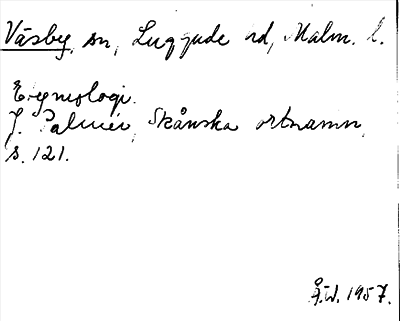 Väsby, sn, Luggude hd, Malm. l.
Etymologi.
J. Palmér, Skånska ortnamn,
s. 121.
Å.W. 1957.